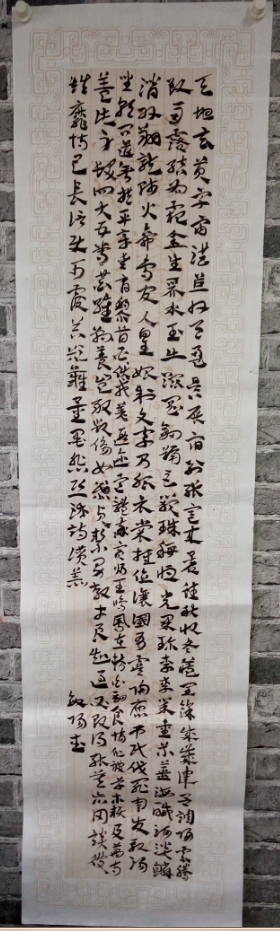 天地玄黄宇宙洪荒日月盈昃辰宿列張寒來暑往秋收冬藏閏餘成歲律吕調陽雲騰
致雨露結為霜金生麗水玉出崑岡劍號巨闕珠稱夜光果珍李柰菜重芥薑海鹹河淡鱗
潛羽翔龍師火帝鳥官人皇始制文字乃服衣裳推位讓國有虞陶唐弔民伐罪周發殷湯
坐朝問道垂拱平章愛育黎首臣伏戎羌遐邇壹體率賓歸王鳴鳳在樹白駒食場化被草木賴及萬方
蓋此身髮四大五常恭惟鞠養豈敢毀傷女慕貞潔男效才良知過必改得能莫忘罔談彼
短靡恃己長信使可覆器欲難量墨悲絲染詩讚羔